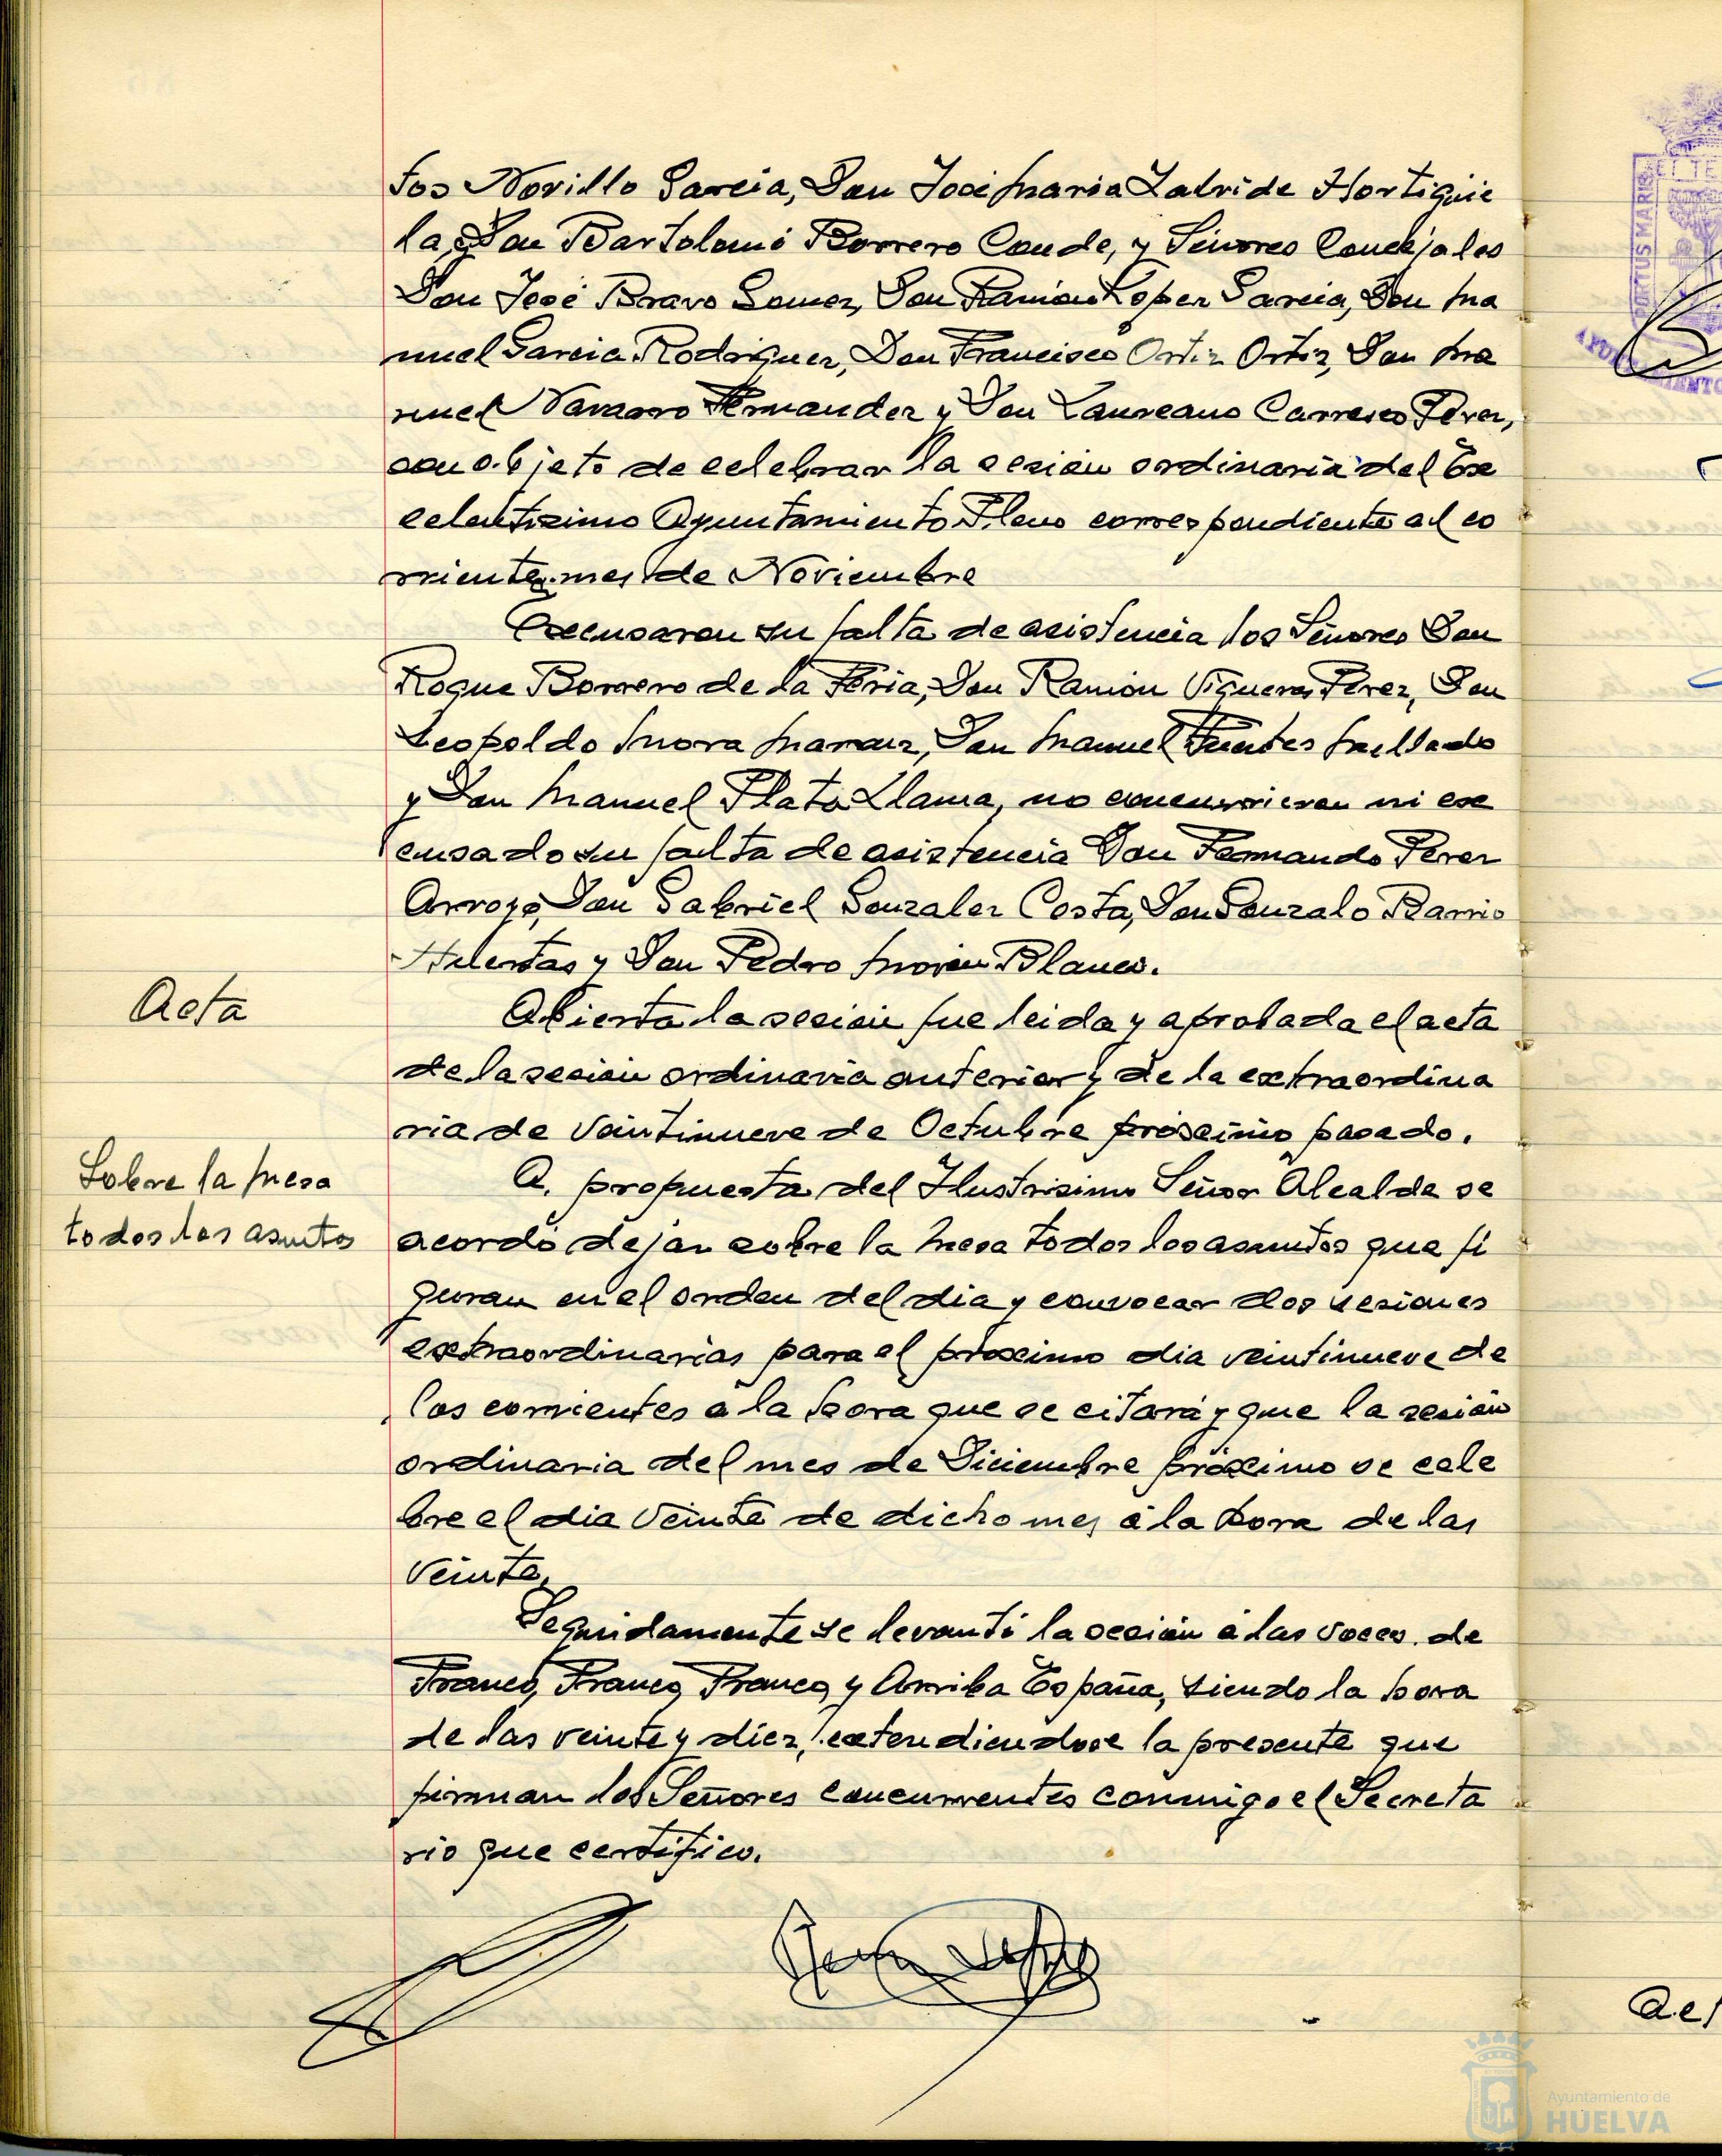 tos Novillo Garcia, Don José Maria Zalvide Hortigüe
la, Don Bartolomé Borrero Conde, y Señores Concejales
Don José Bravo Gomez, Don Ramón Lopez Garcia, Don Ma
nuel Garcia Rodriguez, Don Francisco Ortiz Ortiz, Don Ma
nuel Navarro Hernandez y Don Laureano Carrasco Perez,
con objeto de celebrar la sesión ordinaria del Ex
celentisimo Ayuntamiento Pleno correspondiente al co
rriente mes de Noviembre
Excusaron su falta de asistencia los Señores Don
Roque Borrero de la Feria, Don Ramón Vigueras Perez, Don
Leopoldo Mora, Don Manuel Fuentes
y Don Manuel Plata Llama, no concurrieron ni ex
cusado su falta de asistencia Don Fernando Perez
Arroyo, Don Gabriel Gonzalez Costa, Don Gonzalo Barrio
Huertas y Don Pedro Morón Blanco.
Acta
Abierta la sesión fue leida y aprobada el acta
de la sesión ordinaria anterior y de la extraordina
ria de veintinueve de Octubre próximo pasado.
Sobre la Mesa
todos los asuntos
A propuesta del Ilustrisimo Señor Alcalde se
acordó dejar sobre la Mesa todos los asuntos que fi
guran en el orden del dia y convocar dos sesiones
extraordinarias para el próximo dia veintinueve de
los corrientes a la hora que se citará y que la sesión
ordinaria del mes de Diciembre próximo se cele
bre el dia veinte de dicho mes a la hora de las
veinte.
Seguidamente se levantó la sesión a las voces de
Franco, Franco, Franco, y Arriba España, siendo la hora
de las veinte y diez, extendiendose la presente que
firman los Señores concurrentes conmigo el Secreta
rio que certifico.
PORTUS MARIS ET TE
Ayuntamiento de
HUELVA